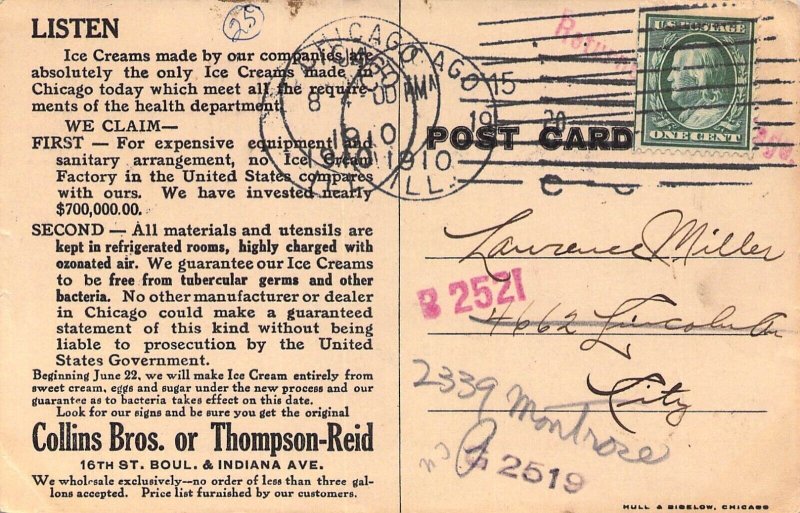 LISTEN
Ice Creams made by our companies are
absolutely the only Ice Creams made in
Chicago today which meet all the require-
ments of the health department.
WE CLAIM—
FIRST — For expensive equipment and
sanitary arrangement, no Ice Cream
Factory in the United States compares
with ours. We have invested nearly
$700,000.00.
SECOND — All materials and utensils are
kept in refrigerated rooms, highly charged with
ozonated air. We guarantee our Ice Creams
to be free from tubercular germs and other
bacteria. No other manufacturer or dealer
in Chicago could make a guaranteed
statement of this kind without being
liable to prosecution by the United
States Government.
Beginning June 22, we will make Ice Cream entirely from
sweet cream, eggs and sugar under the new process and our
guarantee as to bacteria takes effect on this date.
Look for our signs and be sure you get the original
Collins Bros. or Thompson-Reid
16TH ST. BOUL. & INDIANA AVE.
We wholesale exclusively—no order of less than three gal-
lons accepted. Price list furnished by our customers.
259
CHICAGO
1910
ILL.
U.S. POSTAGE
ONE CENT
POST CARD
Lawrence Miller
B 2521
4662 Lincoln Av
City
2339 Montrose
G 2519
HULL & BIGELOW, CHICAGO